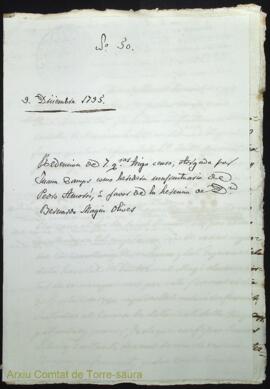 Nº 50.
9. Diciembre 1795.
Redencion de 7 qras trigo censo, otorgada por
Juana Camps como heredera usufructuaria de
Pedro Amorós, à favor de la herencia de Dn
Bernardo Magin Olives
Arxiu Comtat de Torre-saura